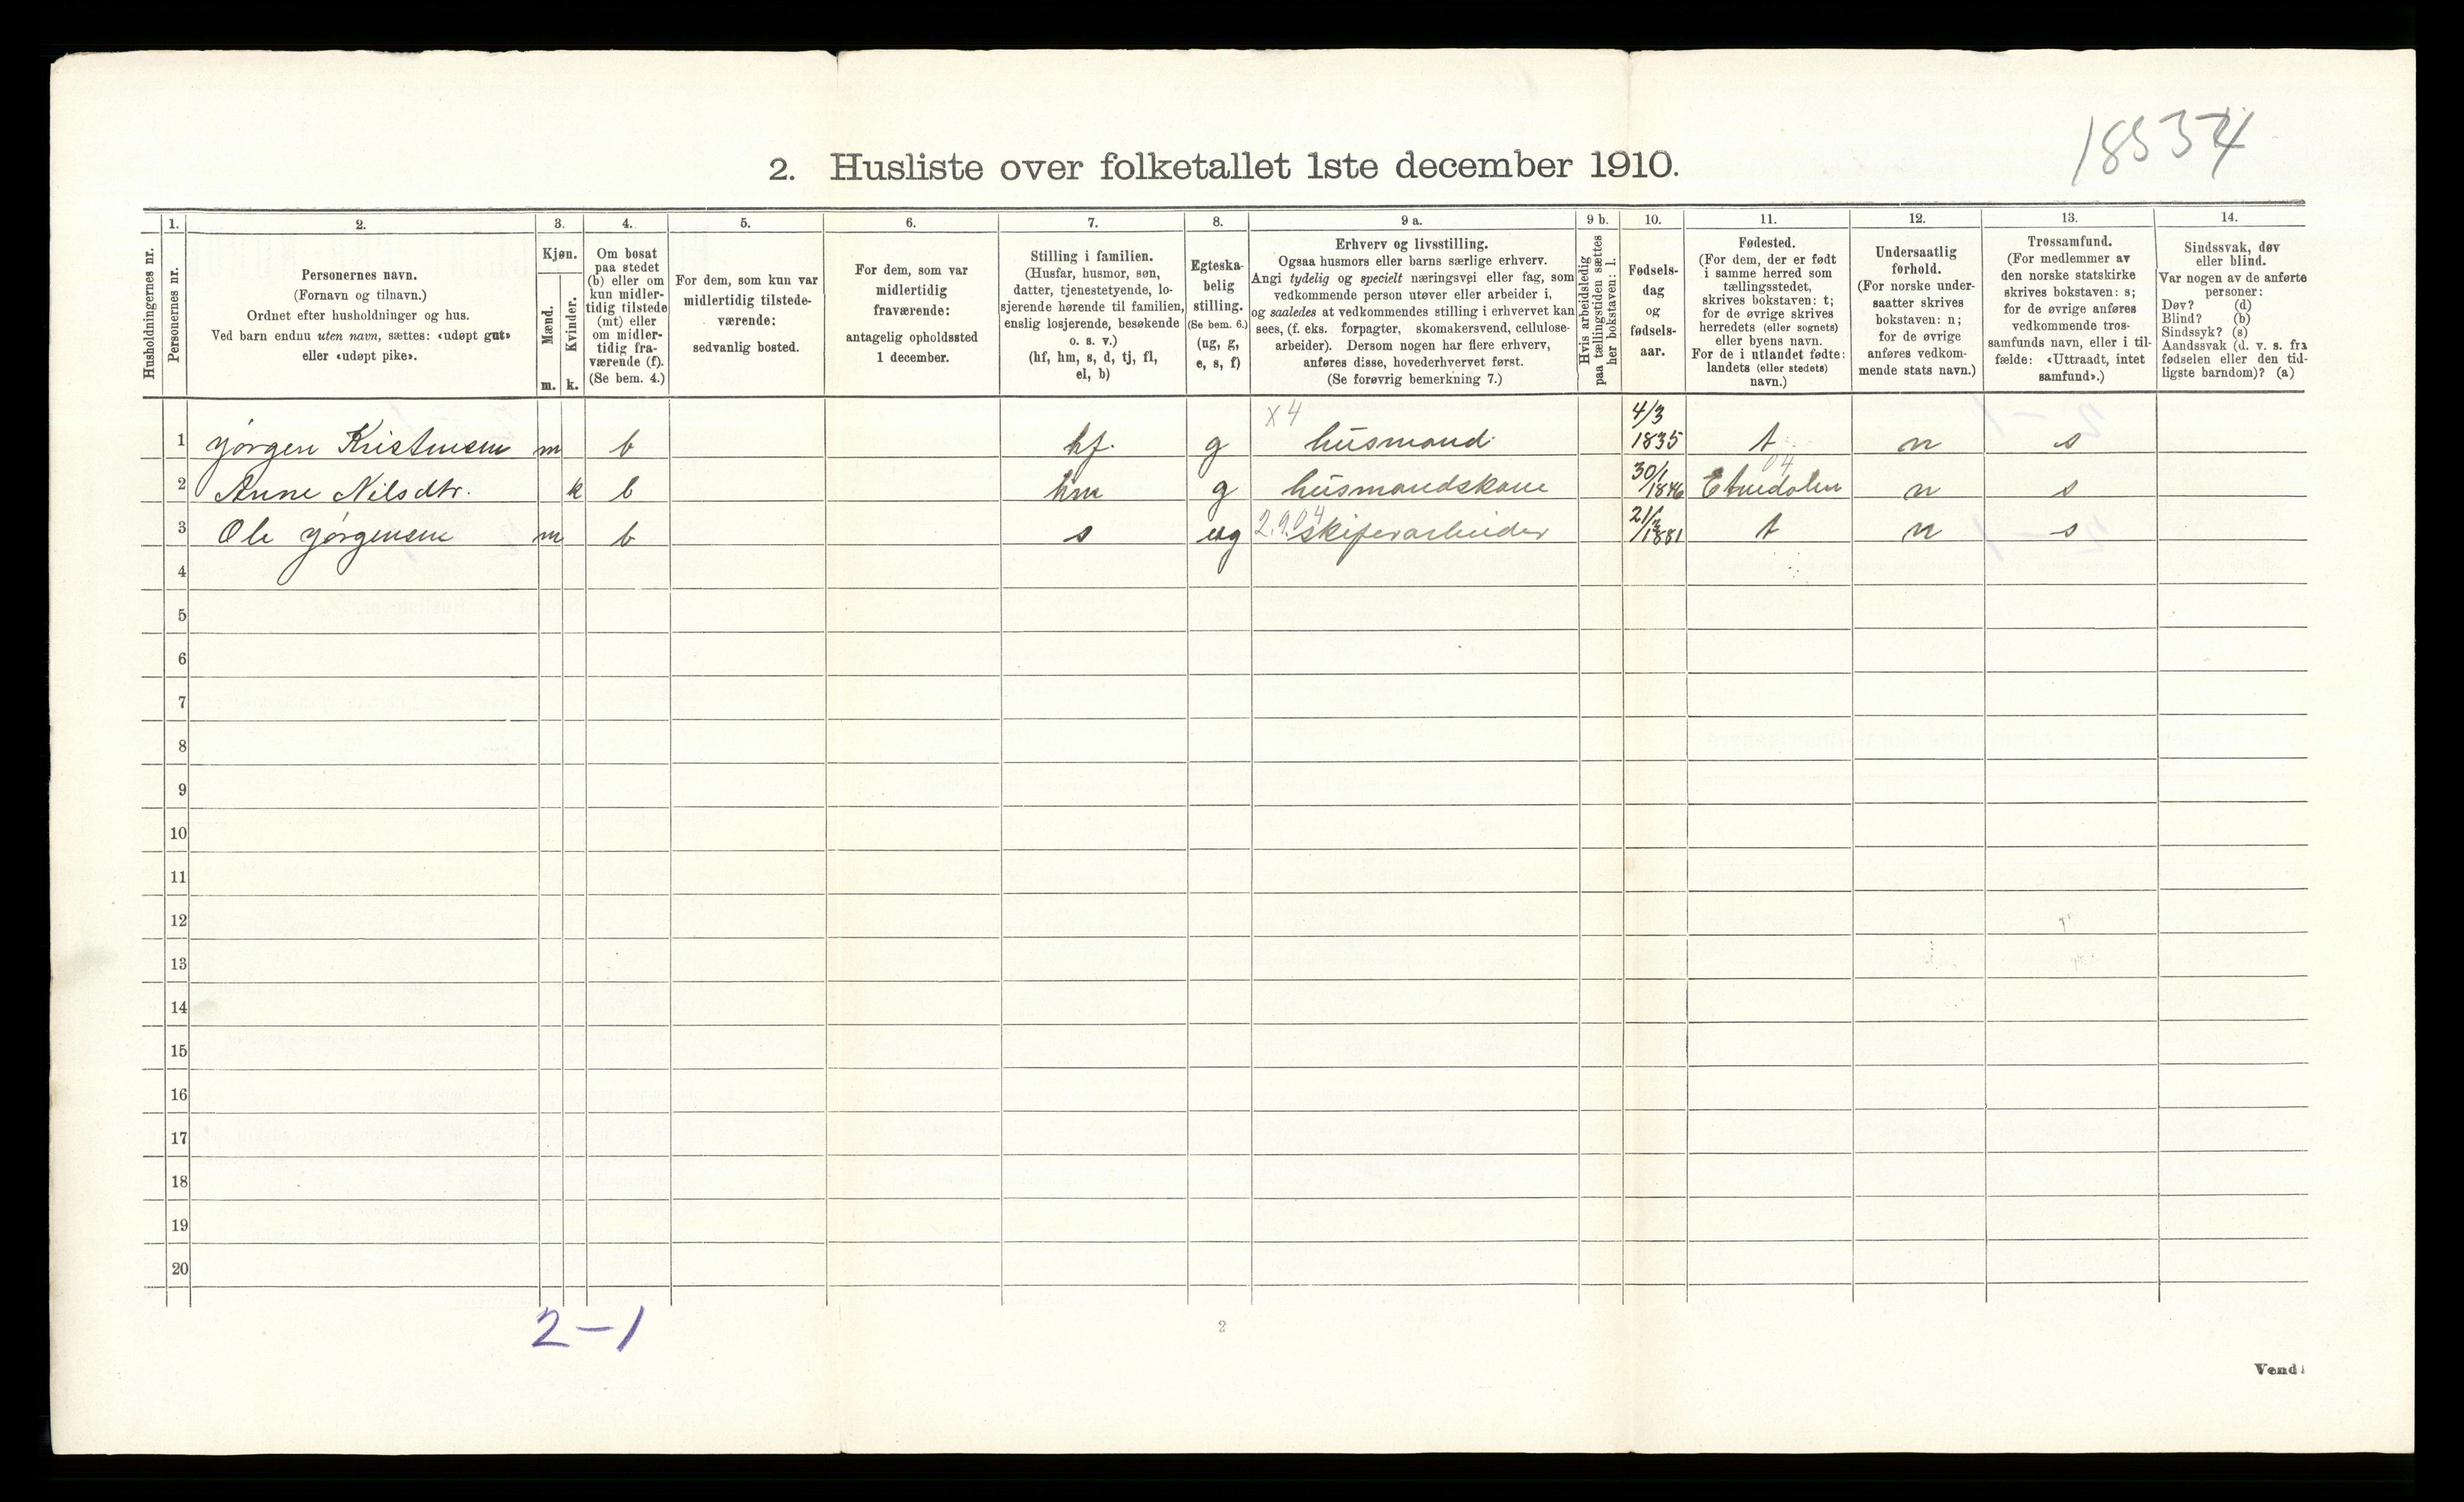 18534
2. Husliste over folketallet 1ste december 1910.
Husholdningernes nr.
1.
Personernes nr.
2.
Personernes navn.
(Fornavn og tilnavn.)
Ordnet efter husholdninger og hus.
Ved barn endnu uten navn, sættes: «udøpt gut»
eller «udøpt pike».
3.
Kjøn.
Mænd.
Kvinder.
m. k.
4.
Om bosat
paa stedet
(b) eller om
kun midler-
tidig tilstede
(mt) eller
om midler-
tidig fra-
værende (f).
(Se bem. 4.)
5.
For dem, som kun var
midlertidig tilstede-
værende:
sedvanlig bosted.
6.
For dem, som var
midlertidig
fraværende:
antagelig opholdssted
1 december.
7.
Stilling i familien.
(Husfar, husmor, søn,
datter, tjenestetyende, lo-
sjerende hørende til familien,
enslig losjerende, besøkende
o. s. v.)
(hf, hm, s, d, tj, fl,
el, b)
8.
Egteska-
belig
stilling.
(Se bem. 6.)
(ug, g,
e, s, f)
9 a.
Erhverv og livsstilling.
Ogsaa husmors eller barns særlige erhverv.
Angi tydelig og specielt næringsvei eller fag, som
vedkommende person utøver eller arbeider i,
og saaledes at vedkommendes stilling i erhvervet kan
sees, (f. eks. forpagter, skomakersvend, cellulose-
arbeider). Dersom nogen har flere erhverv,
anføres disse, hovederhvervet først.
(Se forøvrig bemerkning 7.)
9 b.
Hvis arbeidsledig
paa tællingstiden sættes
her bokstaven: l.
10.
Fødsels-
dag
og
fødsels-
aar.
11.
Fødested.
(For dem, der er født
i samme herred som
tællingsstedet,
skrives bokstaven: t;
for de øvrige skrives
herredets (eller sognets)
eller byens navn.
For de i utlandet fødte:
landets (eller stedets)
navn.)
12.
Undersaatlig
forhold.
(For norske under-
saatter skrives
bokstaven: n;
for de øvrige
anføres vedkom-
mende stats navn.)
13.
Trossamfund.
(For medlemmer av
den norske statskirke
skrives bokstaven: s;
for de øvrige anføres
vedkommende tros-
samfunds navn, eller i til-
fælde: «Uttraadt, intet
samfund».)
14.
Sindssvak, døv
eller blind.
Var nogen av de anførte
personer:
Døv? (d)
Blind? (b)
Sindssyk? (s)
Aandssvak (d. v. s. fra
fødselen eller den tid-
ligste barndom)? (a)
1 Jørgen Kristensen m b hf. g x4 husmand 4/3 1835 t n s
2 Anne Nilsdtr. k b hm g husmandskone 30/1 1846 Etnedalen 04 n s
3 Ole Jørgensen m b s ug 2.9.04 skiferarbeider 21/3 1881 t n s
4
5
6
7
8
9
10
11
12
13
14
15
16
17
18
19
20
2-1
2
Vend!